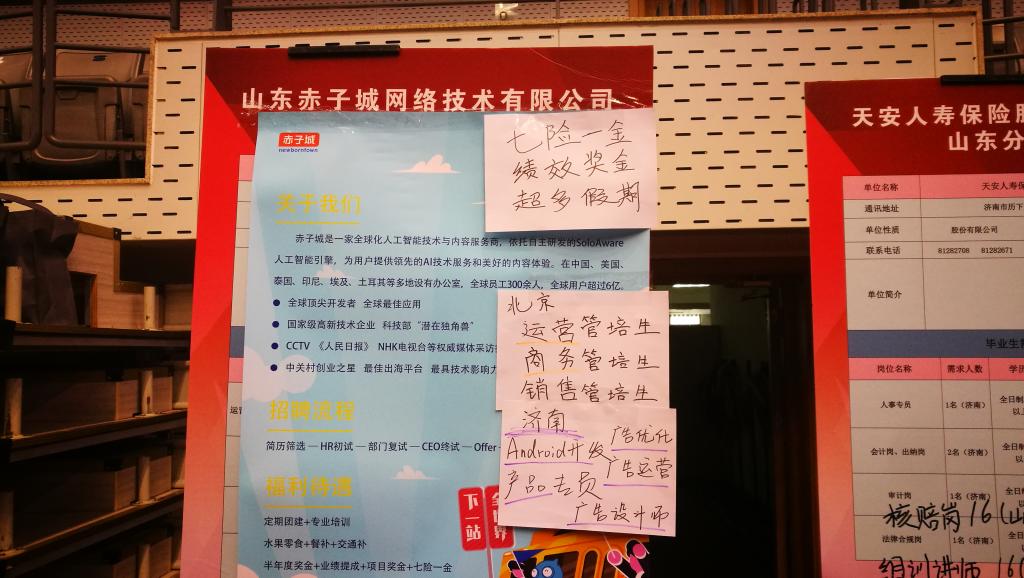 山东赤子城网络技术有限公司
赤子城
newborntown
七险一金
绩效奖金
超多假期
关于我们
赤子城是一家全球化人工智能技术与内容服务商，依托自主研发的SoloAware
人工智能引擎，为用户提供领先的AI技术服务和美好的内容体验。在中国、美国、
泰国、印尼、埃及、土耳其等多地设有办公室，全球员工300余人，全球用户超过6亿。
全球顶尖开发者 全球最佳应用
国家级高新技术企业 科技部“潜在独角兽”
CCTV 《人民日报》 NHK电视台等权威媒体采访
中关村创业之星 最佳出海平台 最具技术影响力
北京
运营管培生
商务管培生
销售管培生
招聘流程
简历筛选—HR初试—部门复试—CEO终试—Offer
济南
Android开发
产品专员
广告优化
广告运营
广告设计师
福利待遇
定期团建+专业培训
水果零食+餐补+交通补
半年度奖金+业绩提成+项目奖金+七险一金
下一站
天安人寿保险
山东分
单位名称 天安人寿保
通讯地址 济南市历下
单位性质 股份有限公司
联系电话 81282708 81282671
单位简介
毕业生
岗位名称 需求人数 学历
人事专员 1名（济南） 全日制
以
会计岗、出纳岗 2名（济南） 全日制
以
审计岗 1名（济南） 全日
核赔岗 16(山
法律合规岗 1名（济南） 全日制
组训讲师 16(